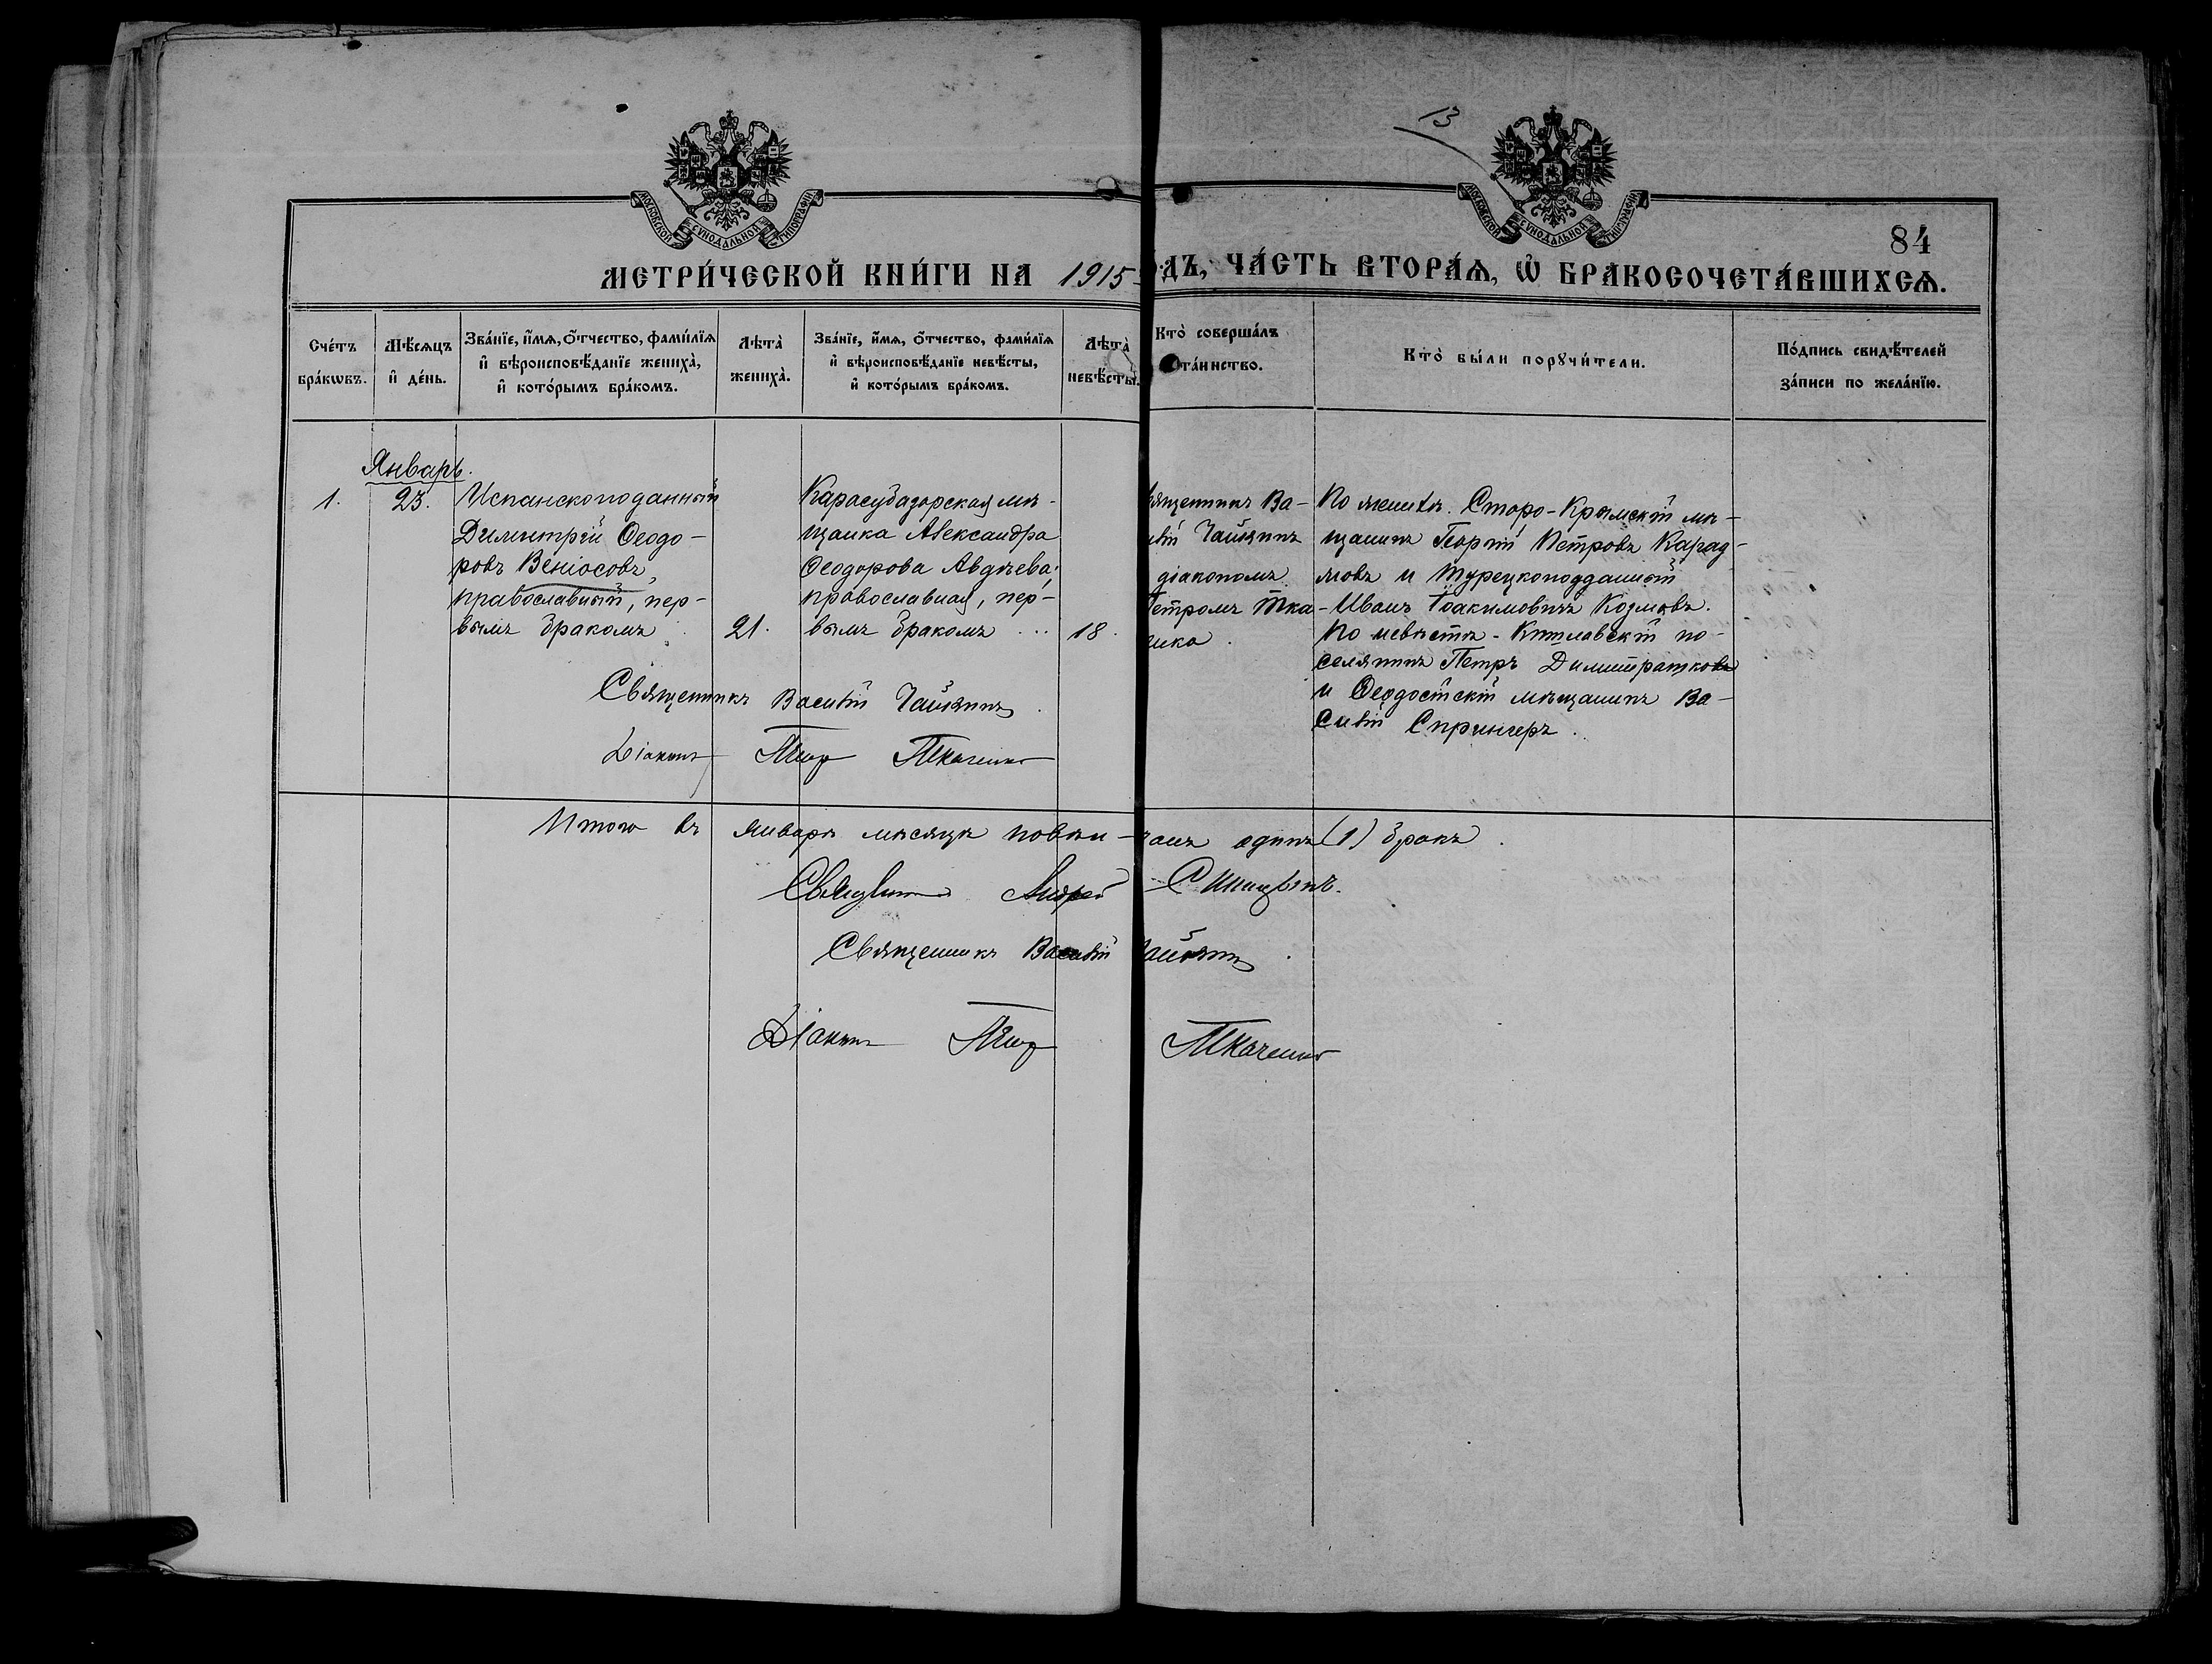 13
84
МОСКОВСКОЙ СѴНОДАЛЬНОЙ ТИПОГРАФІИ
МОСКОВСКОЙ СѴНОДАЛЬНОЙ ТИПОГРАФІИ
МЕТРИ́ЧЕСКОЙ КНИ́ГИ НА 1915
ДЪ, ЧА́СТЬ ВТОРА́Я, Ѡ БРАКОСОЧЕТА́ВШИХСЯ.
Сче́тъ
бра́кѡвъ.
Мѣ́сяцъ
и де́нь.
Зва́нїе, и́мя, ѻ́тчество, фами́лїя
и вѣроисповѣ́данїе жениха̀,
и кото́рымъ бра́комъ.
Лѣта̀
жениха̀.
Зва́нїе, и́мя, ѻ́тчество, фами́лїя
и вѣроисповѣ́данїе невѣ́сты,
и кото́рымъ бра́комъ.
Лѣта̀
невѣ́сты.
Кто̀ соверша́лъ
та́инство.
Кто̀ бы́ли порꙋчи́тели.
По́дпись свидѣ́телей
за́писи по жела́нїю.
Январь.
1.
23.
Испанскоподанный
Димитрій Ѳеодо-
ровъ Веніосовъ,
православный, пер-
вымъ бракомъ
21.
Карасубазарская мѣ-
щанка Александра
Ѳеодорова Авдѣева;
православная, пер-
вымъ бракомъ ...
18.
вященникъ Ва-
илій Чайкинъ
діакономъ
Петромъ Тка-
енко.
По женихѣ. Старо-Крымскій мѣ-
щанинъ Георгій Петровъ Карад-
жовъ и турецкоподданный
Иванъ Іоакимовичъ Козловъ.
По невѣстѣ - Кишлавскій по-
селянинъ Петръ Димитратковъ
и Ѳеодосійскій мѣщанинъ Ва-
силій Спрингеръ.
Священникъ Василій Чайкинъ.
Діаконъ Петръ Ткаченко
Итого въ январѣ мѣсяцѣ повѣн-чанъ одинъ (1) бракъ.
Священникъ Андрей Синицынъ.
Священникъ Василій Чайкинъ.
Діаконъ Петръ Ткаченко